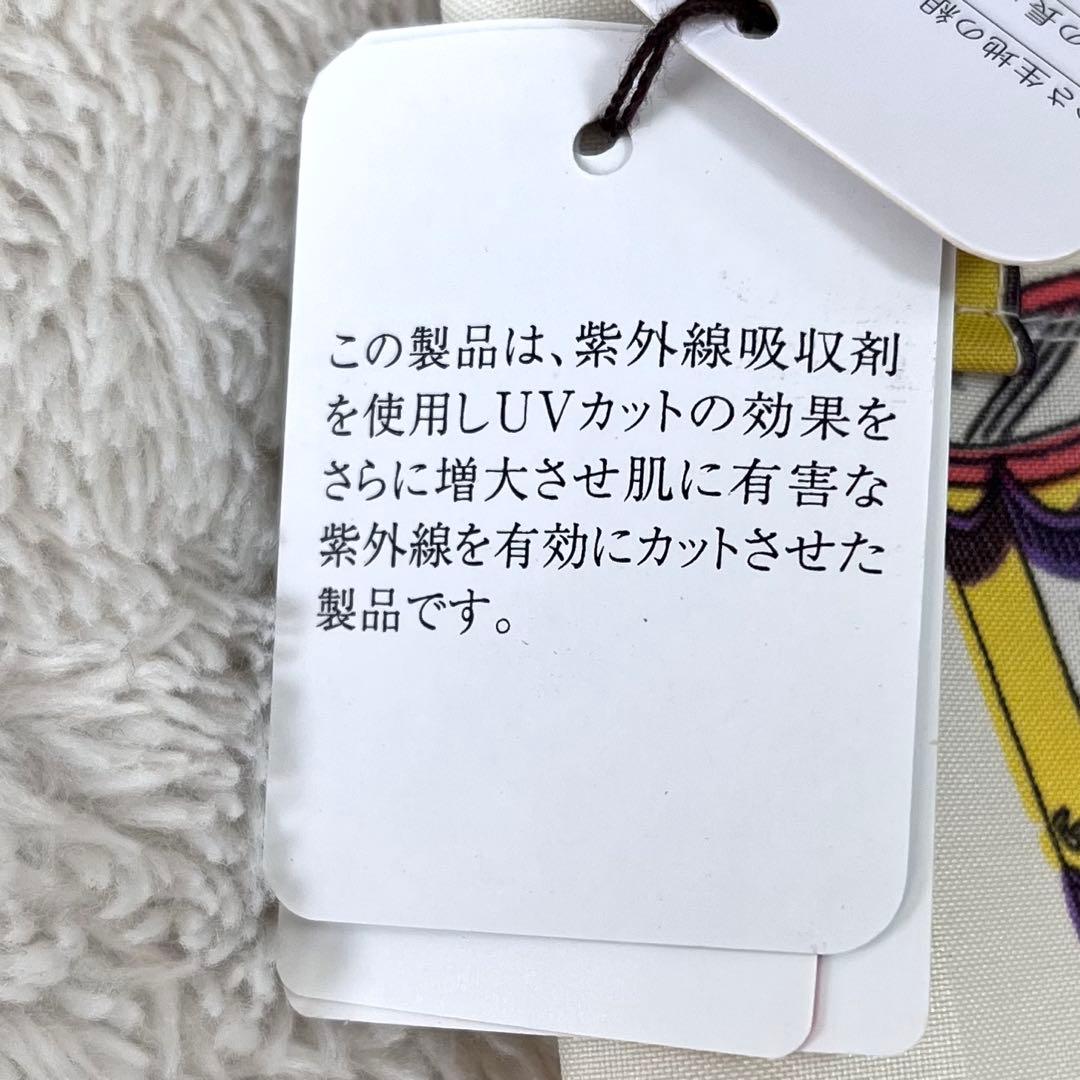 この製品は、紫外線吸収剤
を使用しUVカットの効果を
さらに増大させ肌に有害な
紫外線を有効にカットさせた
製品です。
さ生地の組
の長